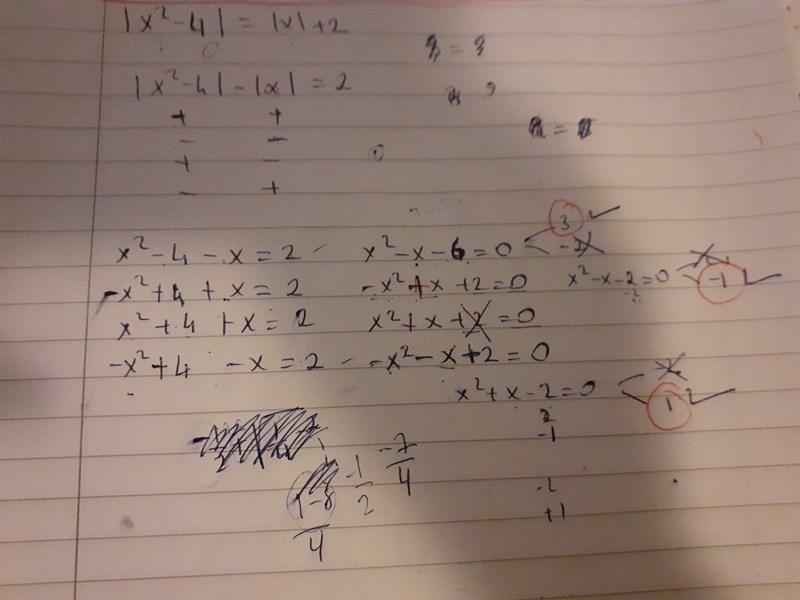 |x²-4| = |x|+2
3 = 3
|x²-4| - |x| = 2
+ +
- -
+ -
- +
x²-4-x=2 - x²-x-6=0 3 ✓
-2
-x²+4+x=2 -x²+x+2=0 x²-x-2=0 -1 ✓
x²+4+x=2 x²+x+2=0
-x²+4-x=2 - -x²-x+2=0
x²+x-2=0 1 ✓
2
-1
-1/2 -7/4
1-8/4
-2
+1